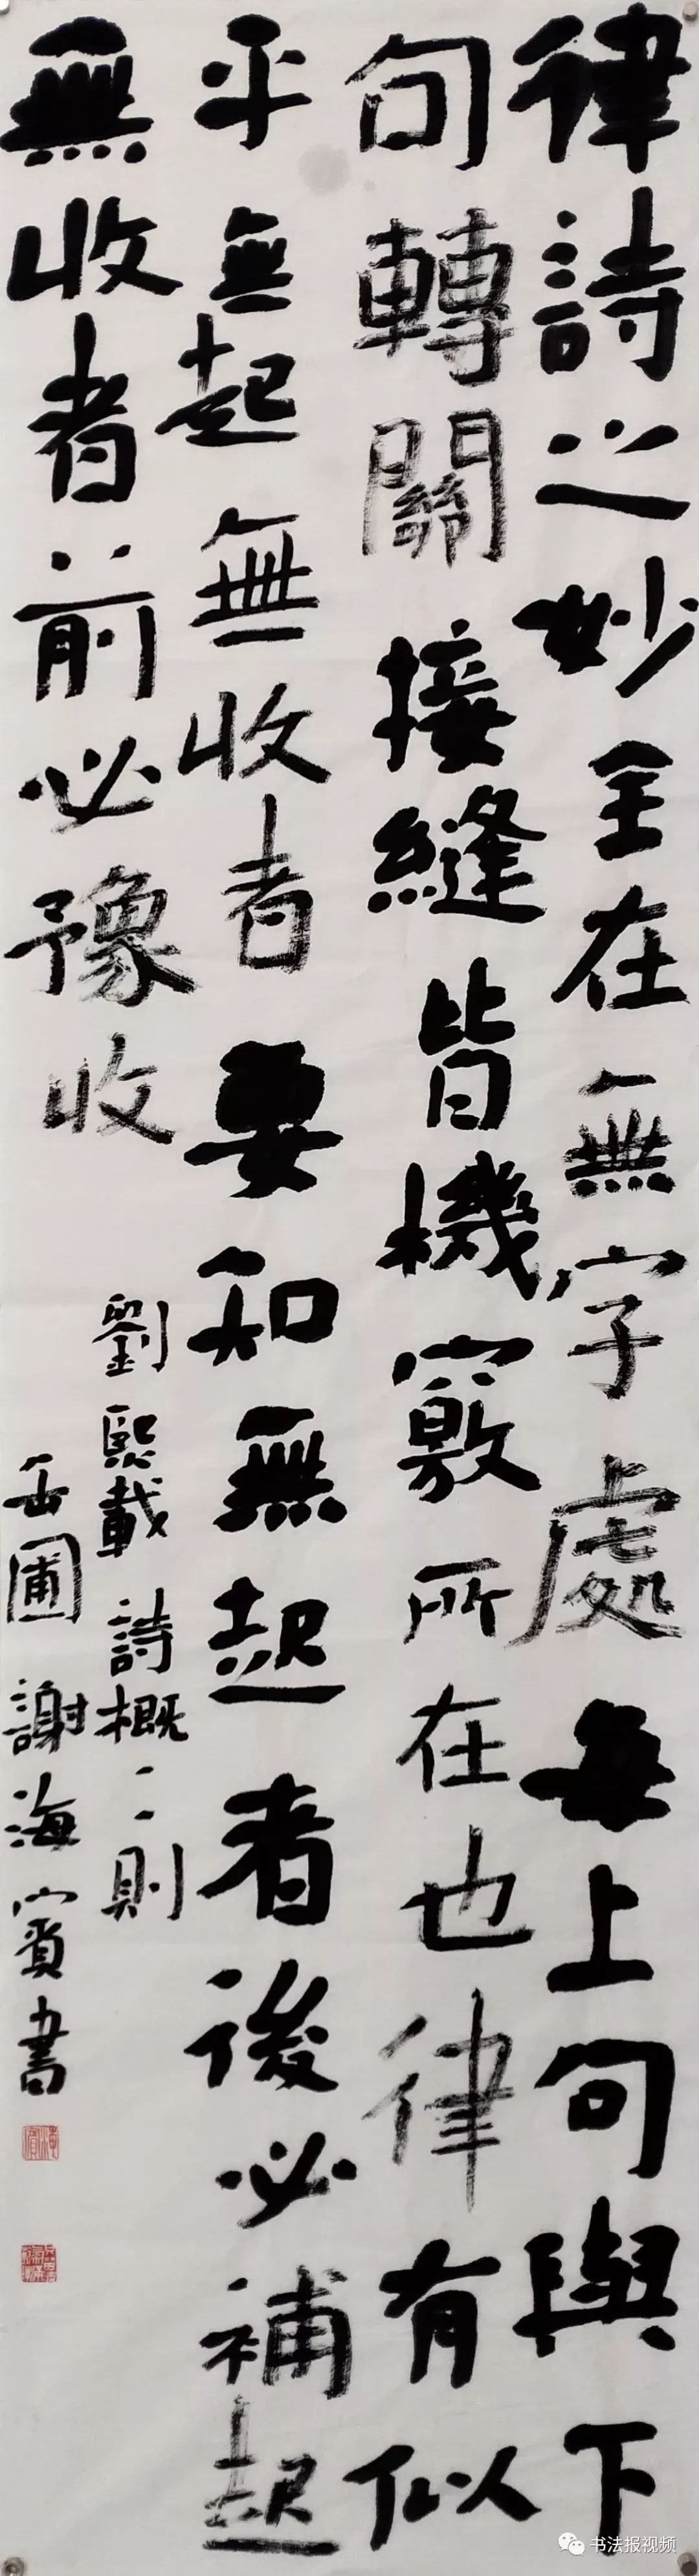 律詩之妙全在無字處每上句與下
句轉關接縫皆機竅所在也律有似
平無起無收者要知無起者後必補起
無收者前必豫收
劉熙載詩概二則
岳圃謝海賓書
书法报视频